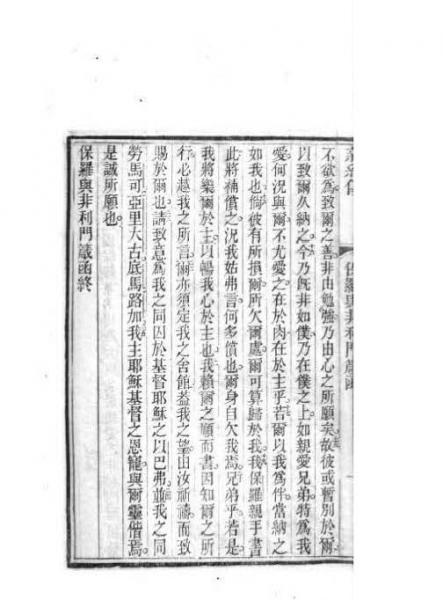 保羅與非利門
不欲為致爾之善非由勉強乃由心之所願矣故彼或暫別於爾
以致爾久納之今乃既非如僕乃在僕之上如親愛兄弟特為我
愛何況與爾不尤愛之在於肉在於主乎若爾以我為伴當納之
如我也倘彼有所損爾所欠爾處爾可算歸於我我保羅親手書
此將補償之況我姑弗言何多償也爾身自欠我焉兄弟乎若是
我將樂爾於主以暢我心於主也我賴爾之順而書因知爾之所
行必越我之所言爾亦須定我之舍館葢我之望由汝祈禱而致
賜於爾也請致意為我之同囚於基督耶穌之以巴弗並我之同
勞馬可亞里大古底馬路加我主耶穌基督之恩寵與爾靈偕焉
是誠所願也
保羅與非利門箴函終